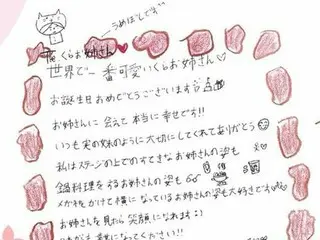 うめぼしです
俺、くらお姉さん
世界で一番可愛いくらお姉さん
お誕生日おめでとうございます
お姉さんに会えて本当に幸せです!!
いつも実の妹のように大切にしてくれてありがとう
私はステージの上でのすてきなお姉さんの姿も
鍋料理をするお姉さんの姿も
メガネをかけて横になっているお姉さんの姿も大好きです
お姉さんを見たら笑顔になれます:)
になってください!!